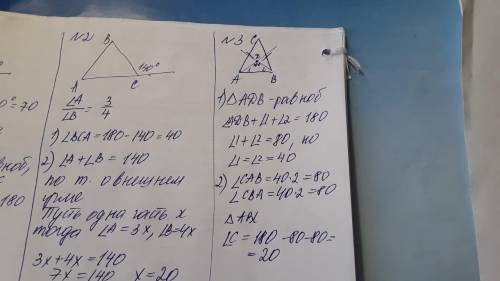 №2
B
A
C
140°
∠A/∠B = 3/4
1) ∠BCA=180-140=40
2) ∠A+∠B = 140
по т. о внешнем
угле
Пусть одна часть x
тогда ∠A=3x, ∠B=4x
3x+4x=140
7x=140 x=20
№3
C
A
B
1) △ADB-равноб
∠ADB+∠1+∠2=180
∠1+∠2=80, но
∠1=∠2=40
2) ∠CAB=40·2=80
∠CBA=40·2=80
∠C=180-80-80=
=20
=70
180